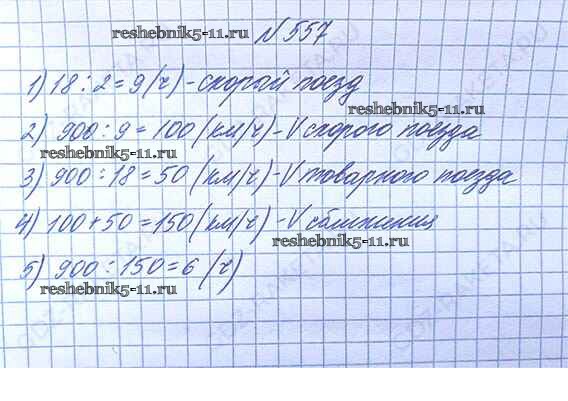 reshebnik5-11.ru
№ 557
1) 18 : 2 = 9 (ч) - скорый поезд
reshebnik5-11.ru
2) 900 : 9 = 100 (км/ч) - V скорого поезда
reshebnik5-11.ru
3) 900 : 18 = 50 (км/ч) - V товарного поезда
4) 100 + 50 = 150 (км/ч) - V сближения
reshebnik5-11.ru
5) 900 : 150 = 6 (ч)
reshebnik5-11.ru